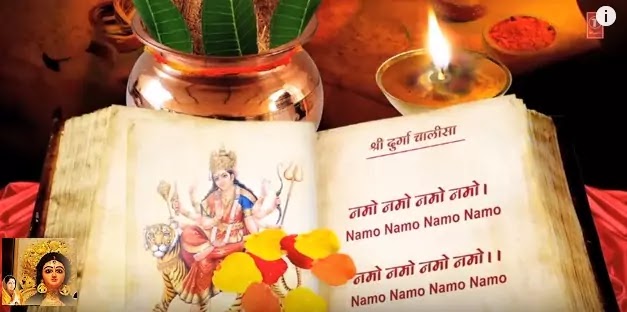 श्री दुर्गा चालीसा
नमो नमो नमो नमो।
Namo Namo Namo Namo
नमो नमो नमो नमो।।
Namo Namo Namo Namo